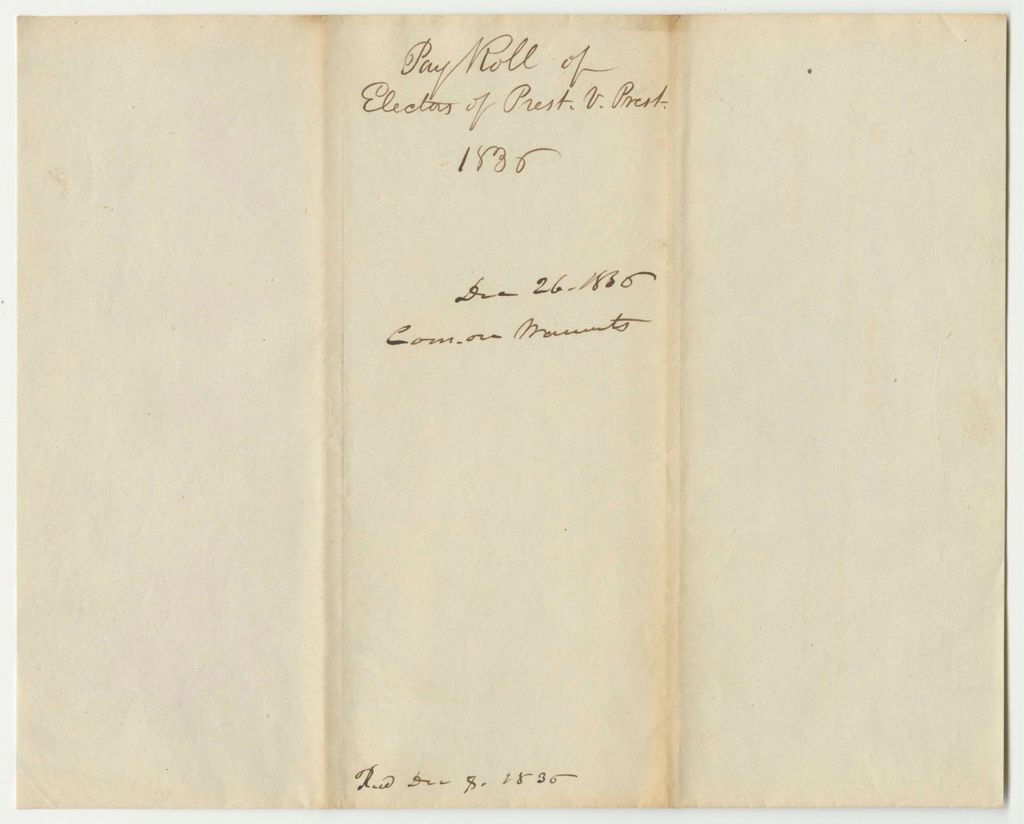 Pay Roll of
Electors of Prest. V. Prest.
1836
Dec 26. 1836
Com. on Warrants
Recd Dec 8. 1836